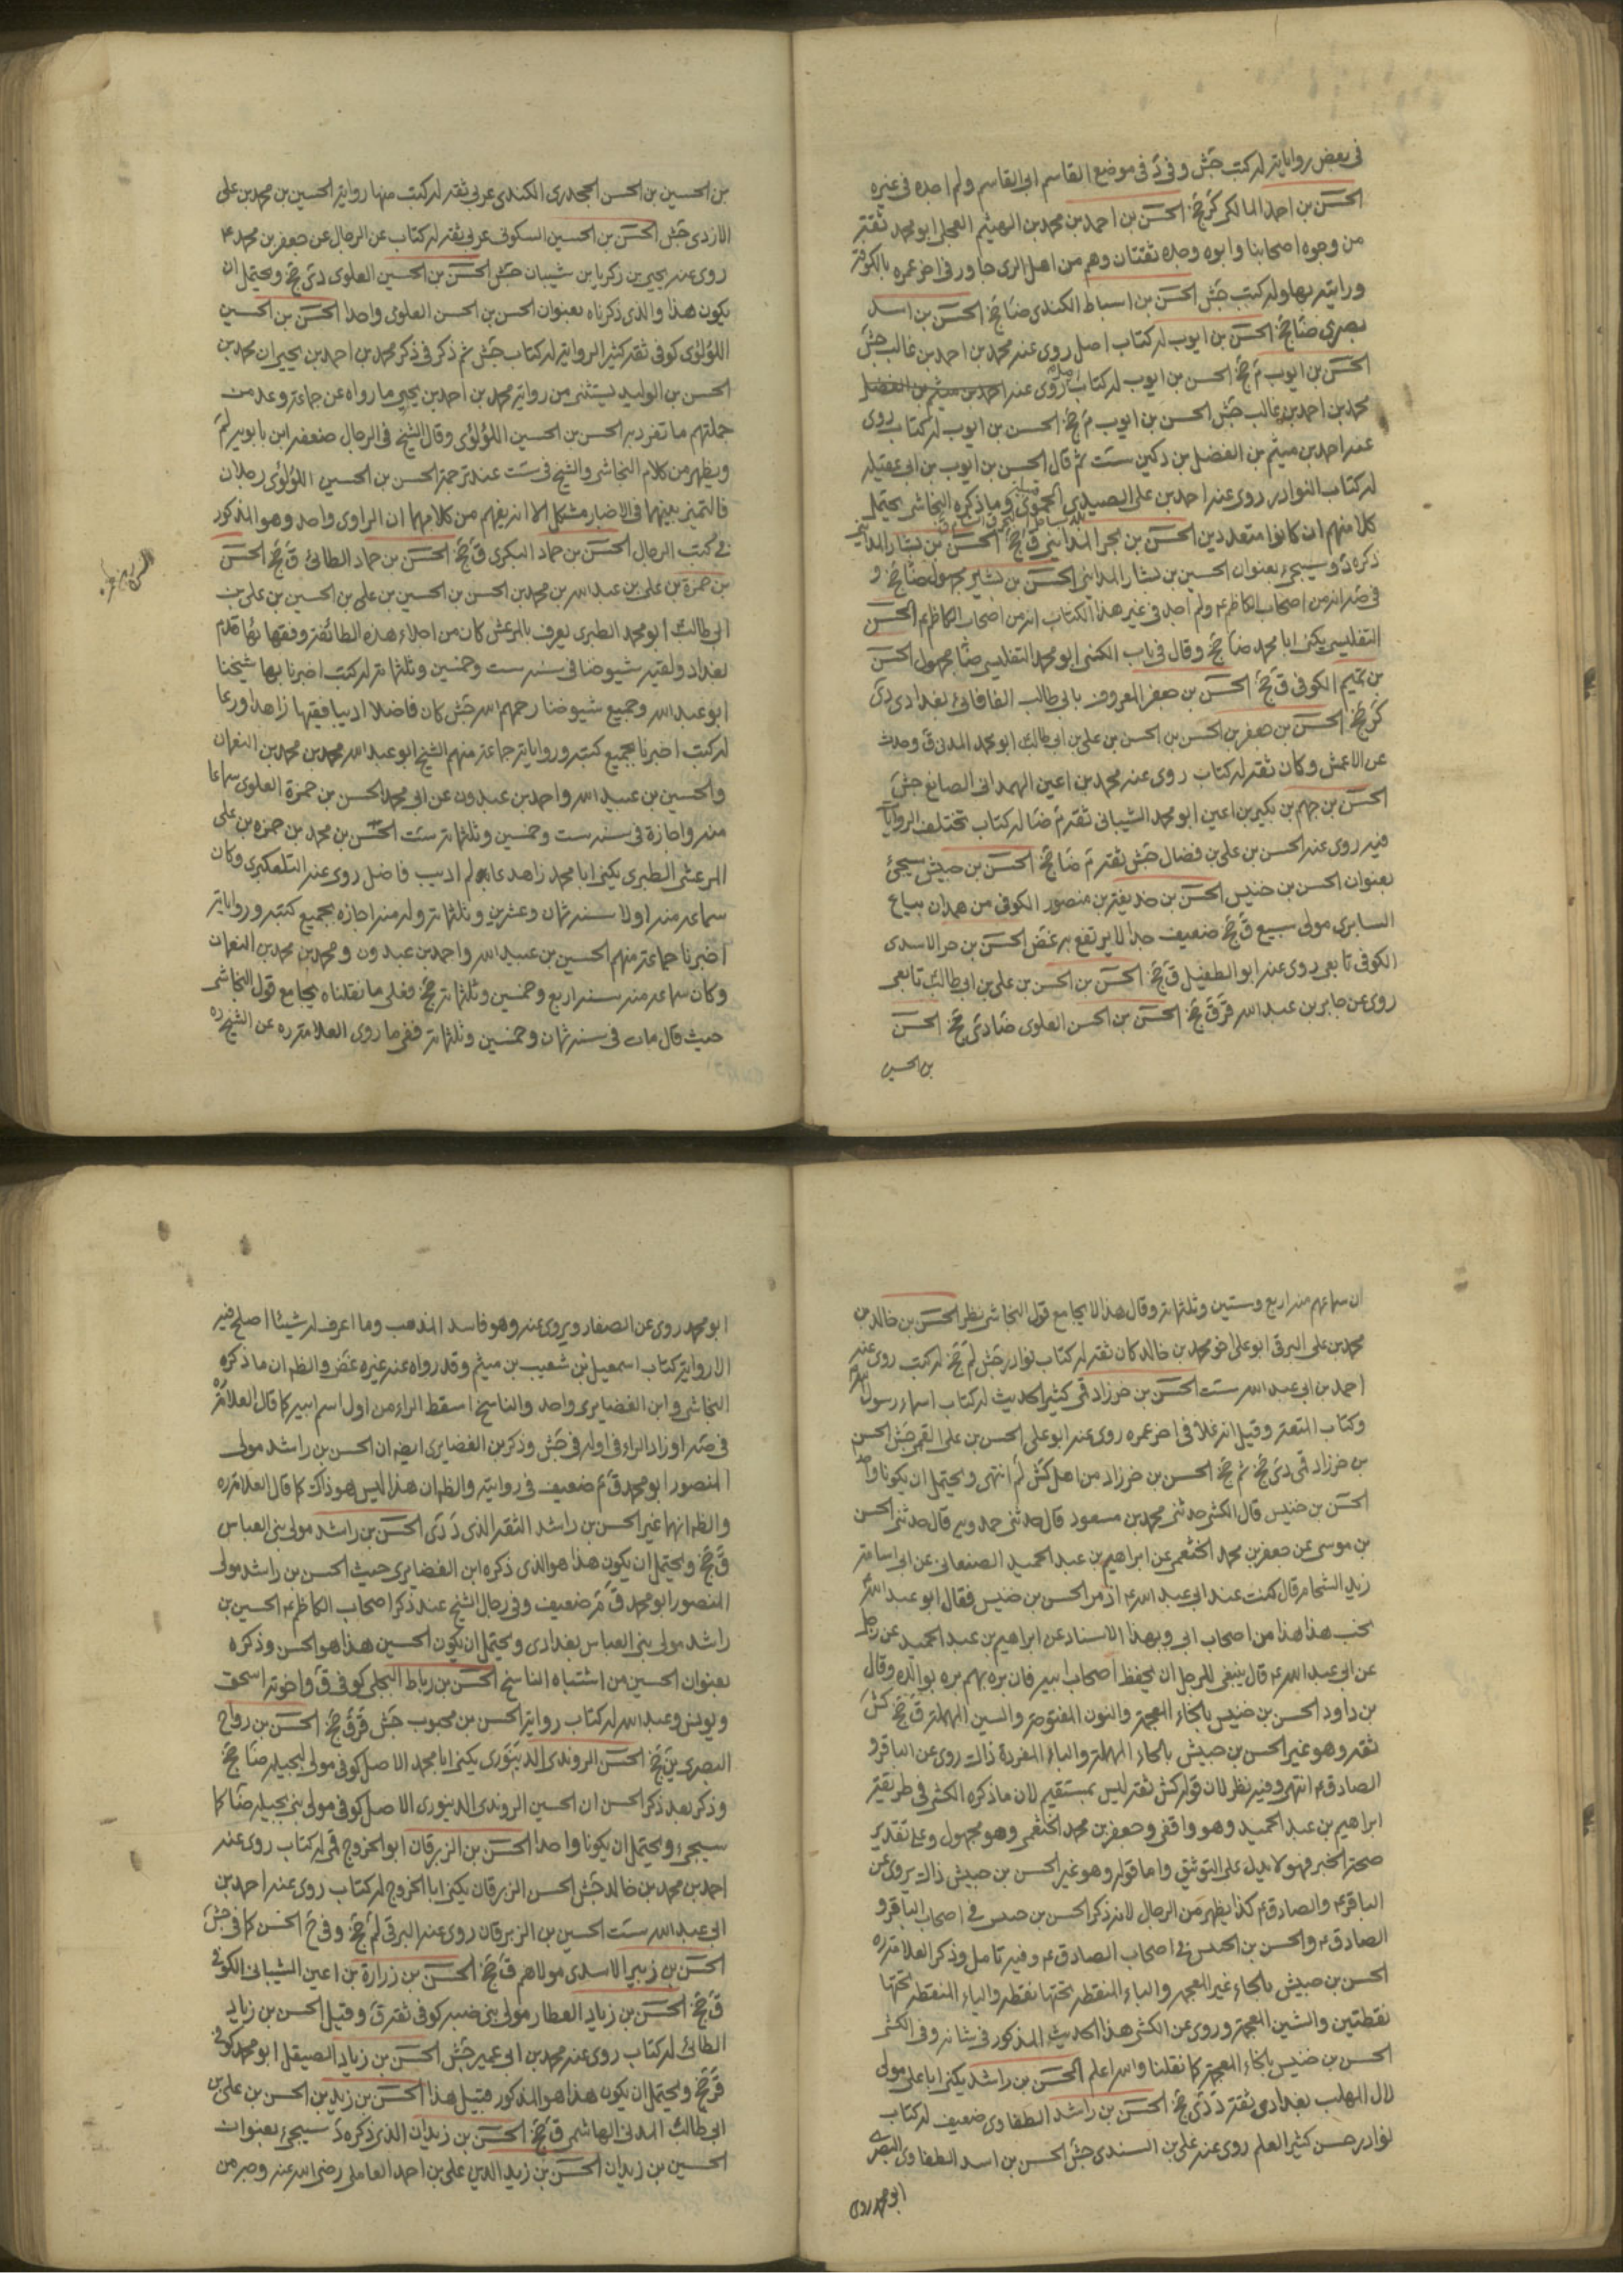 في بعض رواياته له كتب جش وفي د في موضع القاسم ابي القاسم ولم اجده في غيره
الحسن بن احمد المالكي كر جخ الحسن بن احمد بن محمد بن الهيثم العجلي ابو محمد ثقة
من وجوه اصحابنا وابوه وجده ثقتان وهم من اهل الري جاور في اخر عمره بالكوفة
ورايته بها وله كتب جش الحسن بن اسباط الكندي ضا جخ الحسن بن اسد
بصري ضا جخ الحسن بن ايوب له كتاب اصل روى عنه محمد بن احمد بن غالب جش
الحسن بن ايوب م جخ الحسن بن ايوب له كتاب روى عنه احمد بن ميثم بن الفضل
محمد بن احمد بن غالب جش الحسن بن ايوب م جخ الحسن بن ايوب له كتاب روى
عنه احمد بن ميثم بن الفضل بن دكين ست ثم قال الحسن بن ايوب بن ابي عقيلة
له كتاب النوادر روى عنه احمد بن علي الصيدي الحموي وما ذكره النجاشي يحتمل
كلا منهم ان كانوا متعددين الحسن بن بحر المدايني ق جخ الحسن بن بشار المدايني
ذكره د وسيجيء بعنوان الحسين بن بشار المدايني الحسن بن بشير مجهول ضا جخ و
في صه انه من اصحاب الكاظم ع ولم اجد في غير هذا الكتاب انه من اصحاب الكاظم ع الحسن
التفليسي يكنى ابا محمد ضا جخ وقال في باب الكنى ابو محمد التفليسي ضا مجهول الحسن
بن تميم الكوفي ق جخ الحسن بن جعفر المعروف بابي طالب الفافاني بغدادي دي
كر جخ الحسن بن جعفر بن الحسن بن الحسن بن علي بن ابي طالب ابو محمد المدني ق وحدث
عن الاعمش وكان ثقة له كتاب روى عنه محمد بن اعين الهمداني الصائغ جش
الحسن بن جهم بن بكير بن اعين ابو محمد الشيباني ثقة م ضا له كتاب تختلف الروايات
فيه روى عنه الحسن بن علي بن فضال جش ثقة م ضا جخ الحسن بن حبيش سيجئ
بعنوان الحسن بن خنيس الحسن بن حذيفة بن منصور الكوفي من همدان بياع
السابري مولى سبيع ق جخ ضعيف جدا لا يرتفع به غض الحسن بن حر الاسدي
الكوفي تابعي روى عنه ابو الطفيل ق جخ الحسن بن الحسن بن علي بن ابي طالب تابعي
روى عن جابر بن عبد الله قر ق جخ الحسن بن الحسن العلوي ضا دي جخ الحسن
بن الحسين
بن الحسين بن الحسن الجحدري الكندي عربي ثقة له كتب منها رواية الحسين بن محمد بن علي
الازدي جش الحسن بن الحسين السكوني عربي ثقة له كتاب عن الرجال عن جعفر بن محمد ع
روى عنه يحيى بن زكريا بن شيبان جش الحسن بن الحسين العلوي دي جخ ويحتمل ان
يكون هذا والذي ذكرناه بعنوان الحسن بن الحسن العلوي واحدا الحسن بن الحسين
اللؤلؤي كوفي ثقة كثير الرواية له كتاب جش ثم ذكر في ذكر محمد بن احمد بن يحيى ان محمد بن
الحسن بن الوليد يستثنى من رواية محمد بن احمد بن يحيى ما رواه عن جماعة وعد من
جملتهم ما تفرد به الحسن بن الحسين اللؤلؤي وقال الشيخ في الرجال ضعفه ابن بابويه لم
ويظهر من كلام النجاشي والشيخ في ست عند ترجمة الحسن بن الحسين اللؤلؤي رجلان
فالتميز بينهما في الاخبار مشكل الا انه يفهم من كلامهما ان الراوي واحد وهو المذكور
في كتب الرجال الحسن بن حماد البكري ق جخ الحسن بن حماد الطائي ق جخ الحسن
بن حمزة بن علي بن عبد الله بن محمد بن الحسن بن الحسين بن علي بن الحسين بن علي بن
ابي طالب ابو محمد الطبري يعرف بالمرعش كان من اجلاء هذه الطائفة وفقهائها قدم
بغداد ولقيه شيوخنا في سنة ست وخمسين وثلثمائة له كتب اخبرنا بها شيخنا
ابو عبد الله وجميع شيوخنا رحمهم الله جش كان فاضلا اديبا فقيها زاهدا ورعا
له كتب اخبرنا بجميع كتبه ورواياته جماعة منهم الشيخ ابو عبد الله محمد بن محمد بن النعمان
والحسين بن عبيد الله واحمد بن عبدون عن ابي محمد الحسن بن حمزة العلوي سماعا
منه واجازة في سنة ست وخمسين وثلثمائة ست الحسن بن محمد بن حمزة بن علي
المرعشي الطبري يكنى ابا محمد زاهد عالم اديب فاضل روى عنه التلعكبري وكان
سماعه منه اولا سنة ثمان وعشرين وثلثمائة وله منه اجازة بجميع كتبه ورواياته
اخبرنا جماعة منهم الحسين بن عبيد الله واحمد بن عبدون ومحمد بن محمد بن النعمان
وكان سماعه منه سنة اربع وخمسين وثلثمائة جخ فعلى ما نقلناه يجامع قول النجاشي
حيث قال مات في سنة ثمان وخمسين وثلثمائة ففي ما روى العلامة ره عن الشيخ ره
ان سماعهم منه اربع وستين وثلثمائة وقال هذا لا يجامع قول النجاشي نظر الحسن بن خالد بن
محمد بن علي البرقي ابو علي اخو محمد بن خالد كان ثقة له كتاب نوادر جش لم جخ له كتب روى عنه
احمد بن ابي عبد الله ست الحسن بن خرزاذ قمي كثير الحديث له كتاب اسماء رسول الله
وكتاب المتعة وقيل انه غلا في اخر عمره روى عنه ابو علي الحسن بن علي القمي جش الحسن
بن خرزاذ قمي دي جخ ثم جخ الحسن بن خرزاذ من اهل كش لم انتهى ويحتمل ان يكونا واحد
الحسن بن خنيس قال الكشي حدثني محمد بن مسعود قال حدثني حمدويه قال حدثني الحسن
بن موسى عن جعفر بن محمد الخثعمي عن ابراهيم بن عبد الحميد الصنعاني عن ابي اسامة
زيد الشحام قال كنت عند ابي عبد الله ع اذ مر الحسن بن خنيس فقال ابو عبد الله ع
تحب هذا هذا من اصحاب ابي وبهذا الاسناد عن ابراهيم بن عبد الحميد عن رجل
عن ابي عبد الله ع قال ينبغي للرجل ان يحفظ اصحاب ابيه فان بره بهم بره بوالده وقال
بن داود الحسن بن خنيس بالخاء المعجمة والنون المفتوحة والسين المهملة ق جخ كش
ثقة وهو غير الحسن بن حبيش بالحاء المهملة والباء المفردة ذاك روى عن الباقر و
الصادق ع انتهى وفيه نظر لان قوله كش ثقة ليس بمستقيم لان ما ذكره الكشي في طريقة
ابراهيم بن عبد الحميد وهو واقفي وجعفر بن محمد الخثعمي وهو مجهول وعلى تقدير
صحة الخبر فهو لا يدل على التوثيق واما قوله وهو غير الحسن بن حبيش ذاك يروي عن
الباقر ع والصادق ع كذا يظهر من الرجال لانه ذكر الحسن بن حبيس في اصحاب الباقر و
الصادق ع والحسن بن الحبس في اصحاب الصادق ع وفيه تامل وذكر العلامة ره
الحسن بن حبيش بالحاء غير المعجمة والباء المنقطة تحتها نقطة والياء المنقطة تحتها
نقطتين والشين المعجمة وروى عن الكشي هذا الحديث المذكور في شانه وفي الكشي
الحسن بن خنيس بالخاء المعجمة كما نقلنا والله اعلم الحسن بن راشد يكنى ابا علي مولى
لال المهلب بغدادي ثقة د دي جخ الحسن بن راشد الطفاوي ضعيف له كتاب
نوادر حسن كثير العلم روى عنه علي بن السندي جش الحسن بن اسد الطفاوي البصري
ابو محمد روى
ابو محمد روى عن الصفار ويروي عنه وهو فاسد المذهب وما اعرف له شيئا اصلح فيه
الا روايته كتاب اسمعيل بن شعيب بن ميثم وقد رواه عنه غيره غض والظ ان ما ذكره
النجاشي وابن الغضايري واحد والناسخ اسقط الراء من اول اسم ابيه كما قال العلامة ره
في صه او زاد الراء في اوله في جش وذكر بن الغضايري ايضه ان الحسن بن راشد مولى
المنصور ابو محمد ق م ضعيف في روايته والظ ان هذا ليس هو ذاك كما قال العلامة ره
والظ انهما غير الحسن بن راشد الثقة الذي د دي الحسن بن راشد مولى بني العباس
ق جخ ويحتمل ان يكون هذا هو الذي ذكره ابن الغضايري حيث الحسن بن راشد مولى
المنصور ابو محمد ق م ضعيف وفي رجال الشيخ عند ذكر اصحاب الكاظم ع الحسين بن
راشد مولى بني العباس بغدادي ويحتمل ان يكون الحسين هذا هو الحسن وذكره
بعنوان الحسين من اشتباه الناسخ الحسن بن رباط البجلي كوفي ق واخوته اسحق
ويونس وعبد الله له كتاب رواية الحسن بن محبوب جش قر ق جخ الحسن بن رواح
البصري ين جخ الحسن الروندي الدينوري يكنى ابا محمد الاصل كوفي مولى لبجيلة ضا جخ
وذكر بعد ذكر الحسن ان الحسين الروندي الدينوري الاصل كوفي مولى بني بجيلة ضا كما
سيجيء ويحتمل ان يكونا واحدا الحسن بن الزبرقان ابو الخزرج قمي له كتاب روى عنه
احمد بن محمد بن خالد جش الحسن الزبرقان يكنى ابا الخزرج له كتاب روى عنه احمد بن
ابي عبد الله ست الحسين بن الزبرقان روى عنه البرقي لم جخ وفي خ الحسن كما في جش
الحسن بن زبير الاسدي مولاهم ق جخ الحسن بن زرارة بن اعين الشيباني الكوفي
ق جخ الحسن بن زياد العطار مولى بني ضبة كوفي ثقة ق وقيل الحسن بن زياد
الطائي له كتاب روى عنه محمد بن ابي عمير جش الحسن بن زياد الصيقل ابو محمد كوفي
قر جخ ويحتمل ان يكون هذا هو المذكور قبيل هذا الحسن بن زيد بن الحسن بن علي بن
ابي طالب المدني الهاشمي ق جخ الحسن بن زيدان الذي ذكره د سيجيء بعنوان
الحسين بن زيدان الحسن بن زيد الدين علي بن احمد العاملي رضي الله عنه وجه من